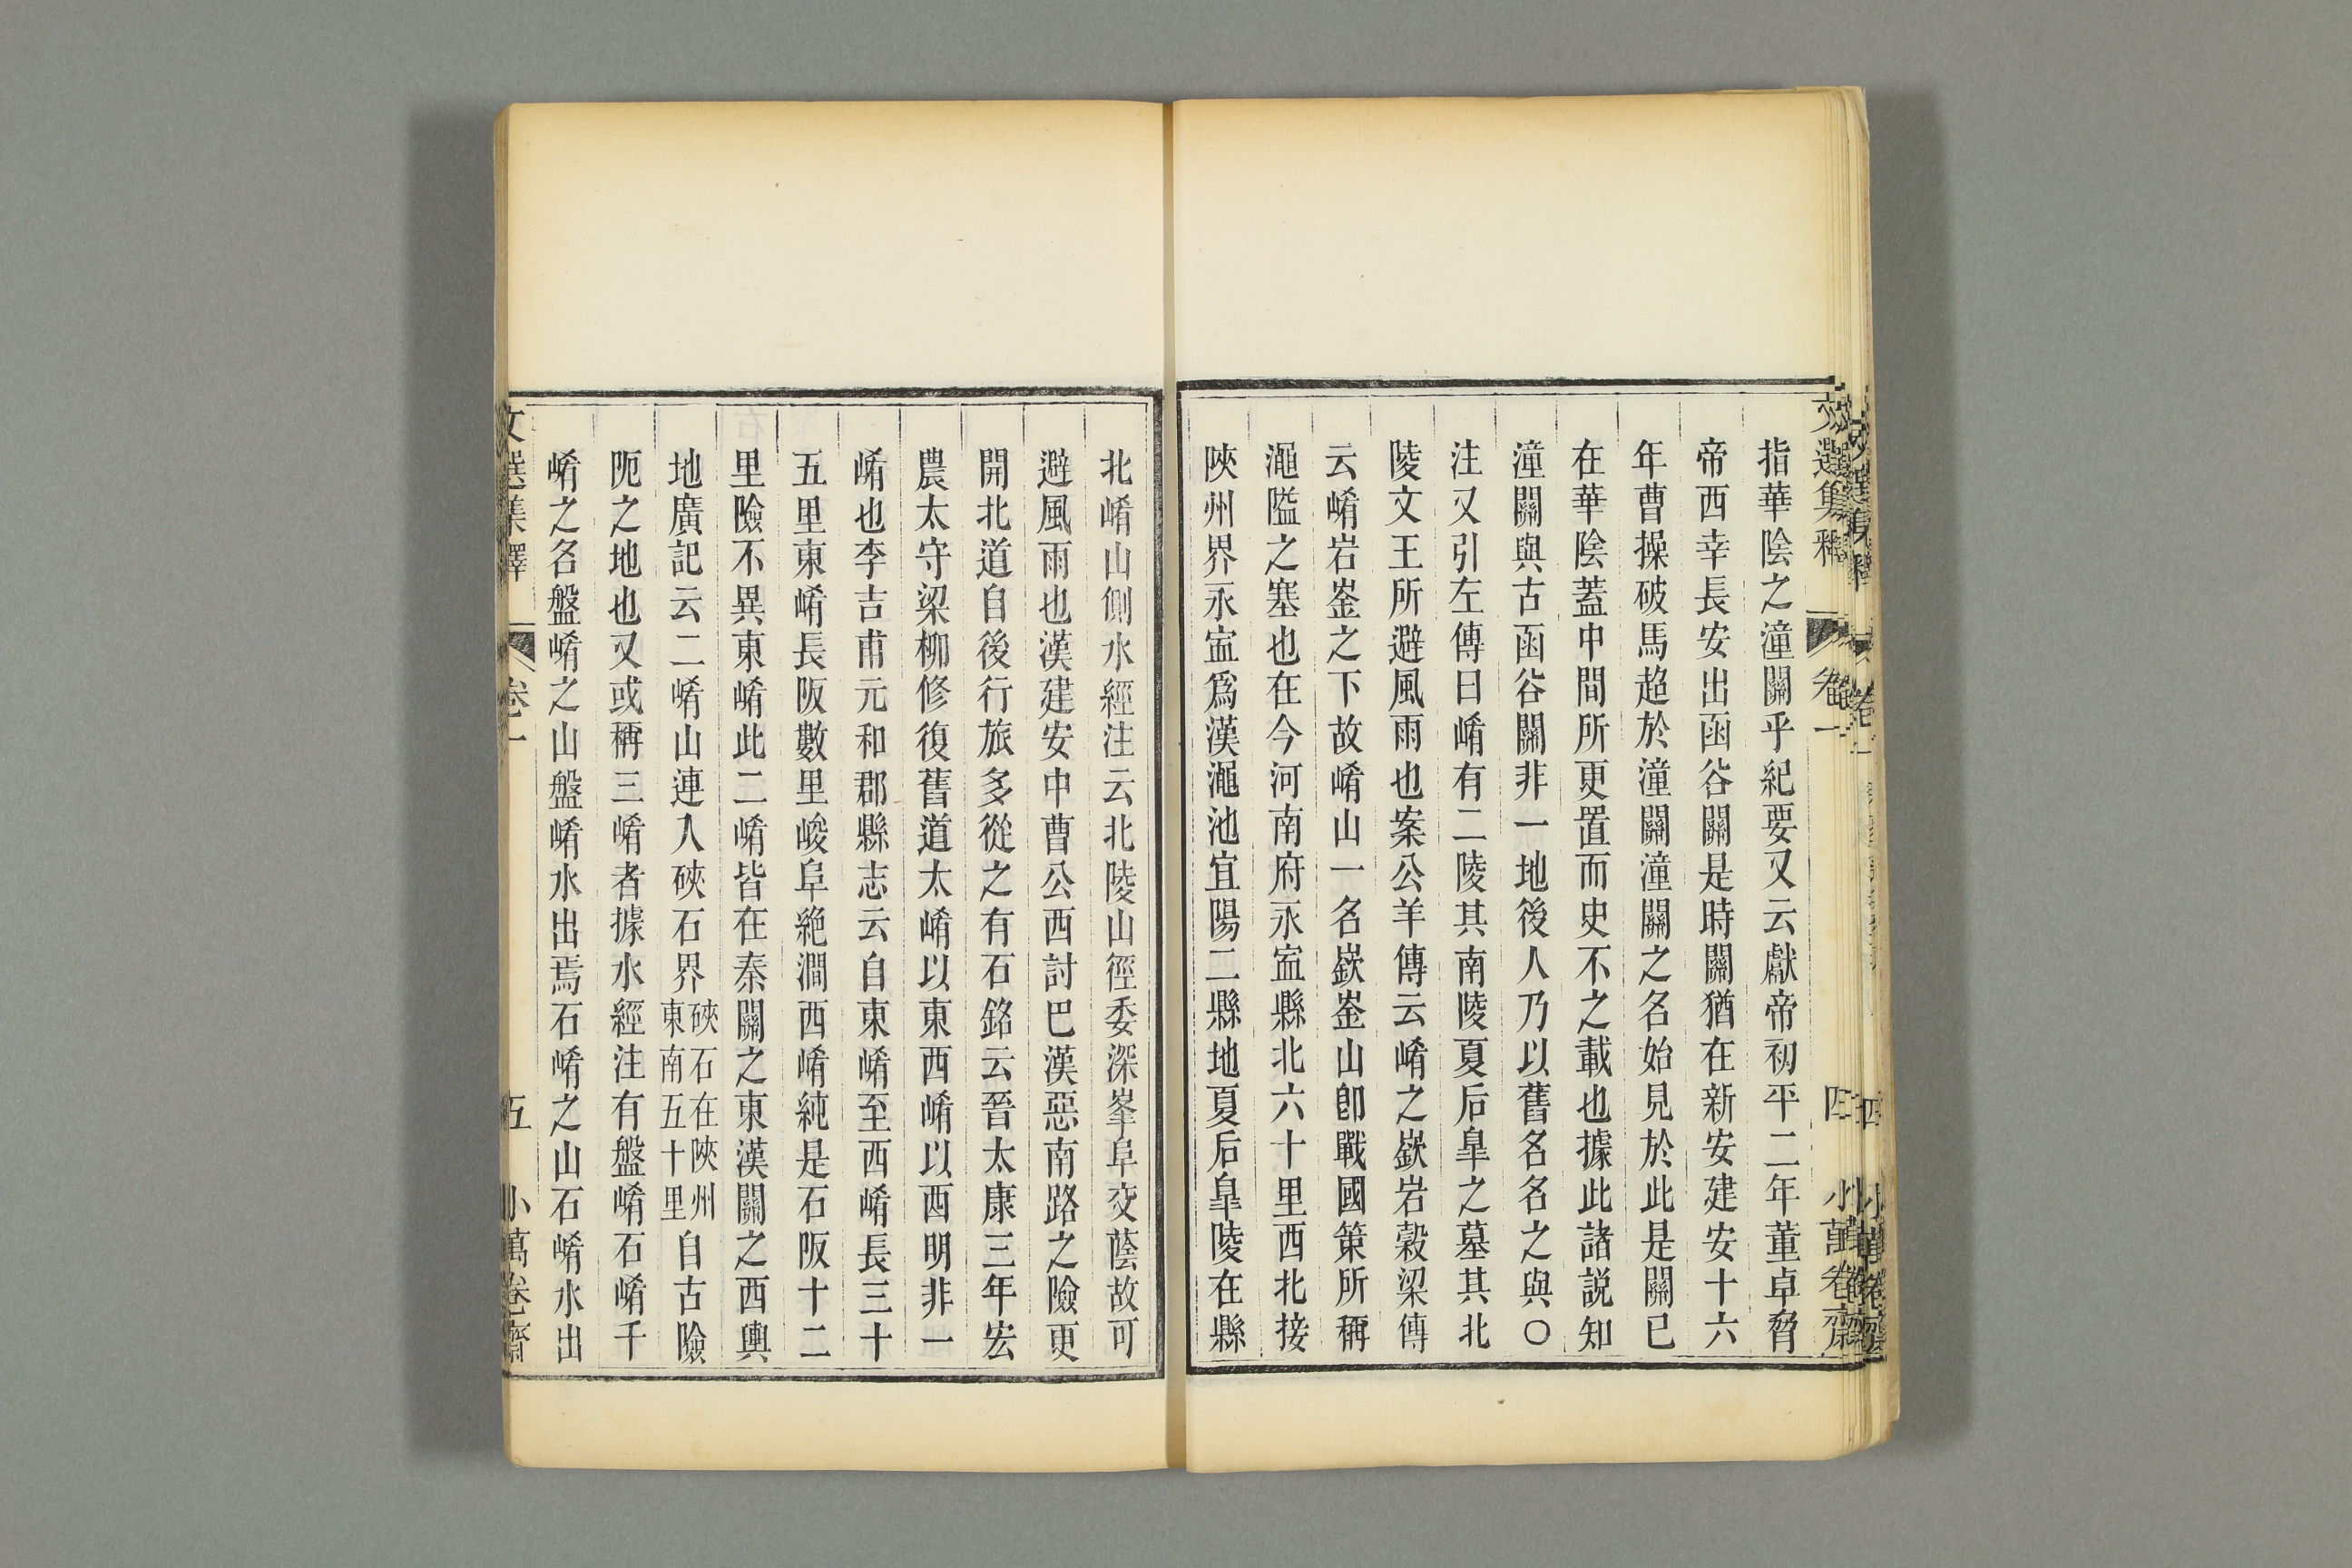 指華陰之潼關乎紀要又云獻帝初平二年董卓脅
帝西幸長安出函谷關是時關猶在新安建安十六
年曹操破馬超於潼關潼關之名始見於此是關已
在華陰蓋中間所更置而史不之載也據此諸説知
潼關與古函谷關非一地後人乃以舊名名之與〇
注又引左傳曰崤有二陵其南陵夏后臯之墓其北
陵文王所避風雨也案公羊傳云崤之嶔岩穀梁傳
云崤岩崟之下故崤山一名嶔崟山卽戰國策所稱
澠隘之塞也在今河南府永寍縣北六十里西北接
陜州界永寍爲漢澠池宜陽二縣地夏后臯陵在縣
文選集釋 卷一 四 小萬卷齋
北崤山側水經注云北陵山徑委深峯阜交蔭故可
避風雨也漢建安中曹公西討巴漢惡南路之險更
開北道自後行旅多從之有石銘云晉太康三年宏
農太守梁柳修復舊道太崤以東西崤以西明非一
崤也李吉甫元和郡縣志云自東崤至西崤長三十
五里東崤長阪數里峻阜絶澗西崤純是石阪十二
里險不異東崤此二崤皆在秦關之東漢關之西輿
地廣記云二崤山連入硤石界硤石在陜州東南五十里自古險
阨之地也又或稱三崤者據水經注有盤崤石崤千
崤之名盤崤之山盤崤水出焉石崤之山石崤水出
文選集釋 卷一 五 小萬卷齋